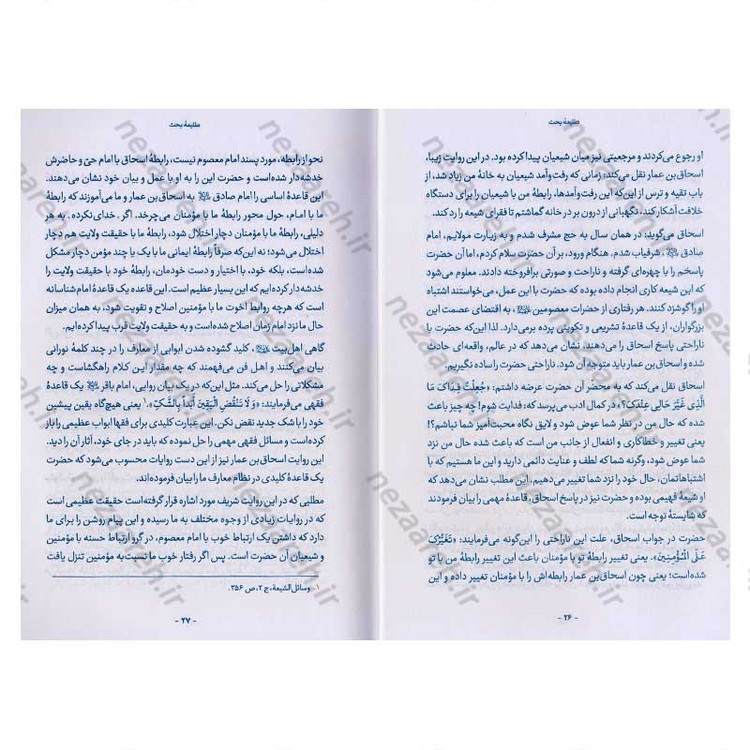 طلیعهٔ بحث
او رجوع می‌کردند و مرجعیتی نیز میان شیعیان پیدا کرده بود. در این روایت زیبا،
اسحاق‌بن عمار نقل می‌کند: زمانی که رفت‌وآمد شیعیان به خانهٔ من زیاد شد، از
باب تقیه و ترس از این‌که این رفت‌وآمدها، رابطهٔ من با شیعیان را برای دستگاه
خلافت آشکار کند، نگهبانی از درون بر در خانه گماشتم تا فقرای شیعه را رد کند.
اسحاق می‌گوید: در همان سال به حج مشرف شدم و به زیارت مولایم، امام
صادق، شرفیاب شدم. هنگام ورود، بر آن حضرت سلام کردم، اما آن حضرت
پاسخم را با چهره‌ای گرفته و ناراحت و صورتی برافروخته دادند. معلوم می‌شود
که این شیعه کاری انجام داده بوده که حضرت با این عمل، می‌خواستند اشتباه
او را گوشزد کنند. هر رفتاری از حضرات معصومین، به اقتضای عصمت این
بزرگواران، از یک قاعدهٔ تشریعی و تکوینی پرده برمی‌دارد. لذا این‌که حضرت با
ناراحتی پاسخ اسحاق را می‌دهند، نشان می‌دهد که در عالم، واقعه‌ای حادث
شده و اسحاق‌بن عمار باید متوجه آن شود.
اسحاق نقل می‌کند که به محضر آن حضرت عرضه داشتم: «جُعِلْتُ فِدَاکَ مَا
الَّذِی غَیَّرَ حَالِی عِنْدَکَ؟» در کمال ادب می‌پرسد که: فدایت شوم! چه چیز باعث
شده که حال من در نظر شما عوض شود و لایق نگاه محبت‌آمیز شما نباشم؟!
یعنی تغییر و خطاکاری و انفعال از جانب من است که باعث شده حال من نزد
شما عوض شود، وگرنه شما که لطف و عنایت دائمی دارید و این ما هستیم که با
اشتباهاتمان، حال خود را نزد شما تغییر می‌دهیم. این مطلب نشان می‌دهد که
او شیعهٔ فهیمی بوده و حضرت نیز در پاسخ اسحاق، قاعدهٔ مهمی را بیان فرمودند
که شایستهٔ توجه است.
حضرت در جواب اسحاق، علت این ناراحتی را این‌گونه می‌فرمایند: «تَغَیُّرُکَ
عَلَی الْمُؤْمِنِینَ». یعنی تغییر رابطهٔ تو با مؤمنان باعث این تغییر رابطهٔ من با تو
شده‌است؛ یعنی چون اسحاق‌بن عمار رابطه‌اش را با مؤمنان تغییر داده و این
- ۲۶ -
طلیعهٔ بحث
نحو از رابطه، مورد پسند امام معصوم نیست، رابطهٔ اسحاق با امام حیّ و حاضرش
خدشه‌دار شده‌است و حضرت این را به او با عمل و بیان خود نشان می‌دهند.
این قاعدهٔ اساسی را امام صادق به اسحاق‌بن عمار و ما می‌آموزند که رابطهٔ
ما با امام، حول محور رابطهٔ ما با مؤمنان می‌چرخد. اگر، خدای‌نکرده، به هر
دلیلی، رابطهٔ ما با مؤمنان دچار اختلال شود، رابطهٔ ما با حقیقت ولایت هم دچار
اختلال می‌شود؛ نه این‌که صرفاً رابطهٔ ایمانی ما با یک یا چند مؤمن دچار مشکل
شده‌است، بلکه خود، با اختیار و دست خودمان، رابطهٔ خود با حقیقت ولایت را
خدشه‌دار کرده‌ایم که این بسیار عظیم است. این قاعده یک قاعدهٔ امام‌شناسانه
است که هرچه روابط اخوت ما با مؤمنین اصلاح و تقویت شود، به همان میزان
حال ما نزد امام زمان اصلاح شده‌است و به حقیقت ولایت قرب پیدا کرده‌ایم.
گاهی اهل‌بیت، کلید گشوده شدن ابوابی از معارف را در چند کلمهٔ نورانی
بیان می‌کنند و اهل فن می‌فهمند که چه مقدار این کلام راهگشاست و چه
مشکلاتی را حل می‌کند. مثل این‌که در یک بیان روایی، امام باقر یک قاعدهٔ
فقهی می‌فرمایند: «وَ لَا تَنْقُضِ الْیَقِینَ أَبَداً بِالشَّکِّ».۱ یعنی هیچ‌گاه یقین پیشین
خود را با شک جدید نقض نکن. این عبارت کلیدی برای فقها ابواب عظیمی را باز
کرده‌است و مسائل فقهی مهمی را حل نموده که باید در جای خود، آثار آن را دید.
این روایت اسحاق‌بن عمار نیز از این دست روایات محسوب می‌شود که حضرت
یک قاعدهٔ کلیدی در نظام معارف ما را بیان فرموده‌اند.
مطلبی که در این روایت شریف مورد اشاره قرار گرفته‌است حقیقت عظیمی است
که در روایات زیادی از وجوه مختلف به ما رسیده و این پیام روشن را برای ما
دارد که داشتن یک ارتباط خوب با امام معصوم، در گرو ارتباط حسنه با مؤمنین
و شیعیان آن حضرت است. پس اگر رفتار خوب ما نسبت به مؤمنین تنزل یافت
۱ وسائل الشیعة، ج ۲، ص ۳۵۶.
- ۲۷ -
nezaareh.ir